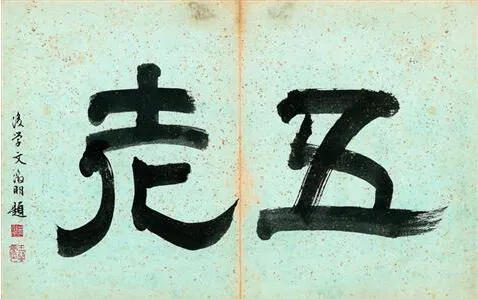 五老
後学文徵明題